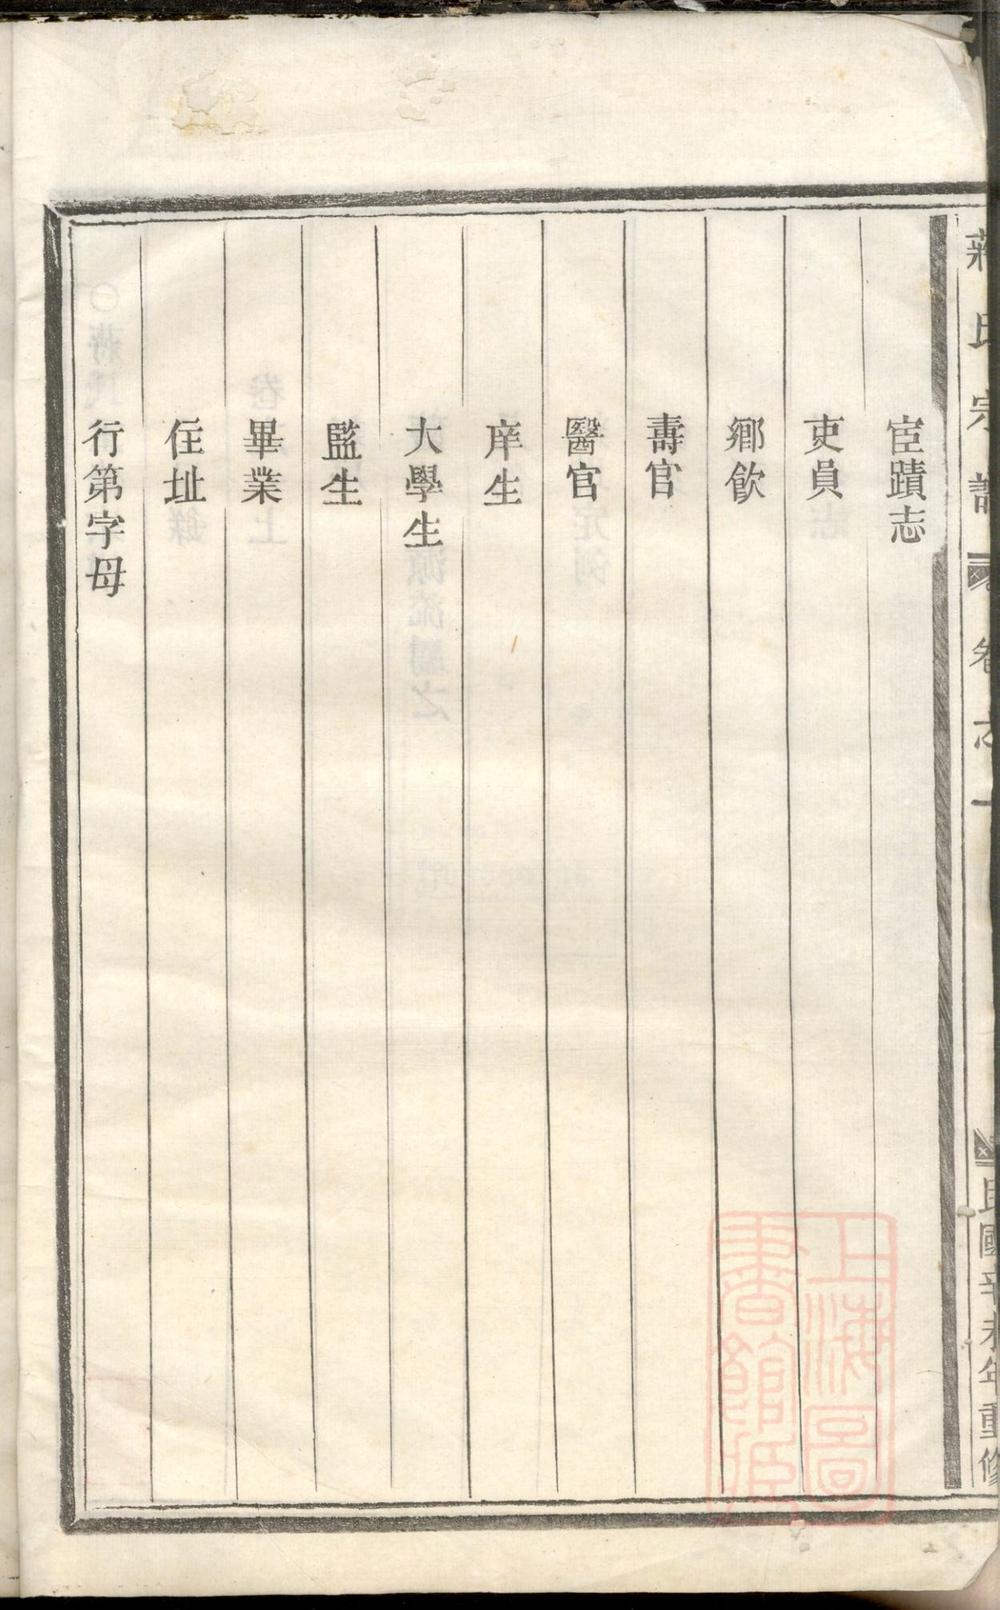 蔣氏宗譜 卷之一 民國辛未年重修
宦蹟志
吏員
鄉飲
壽官
醫官
庠生
大學生
監生
畢業
住址
行第字母
上海圖書館藏